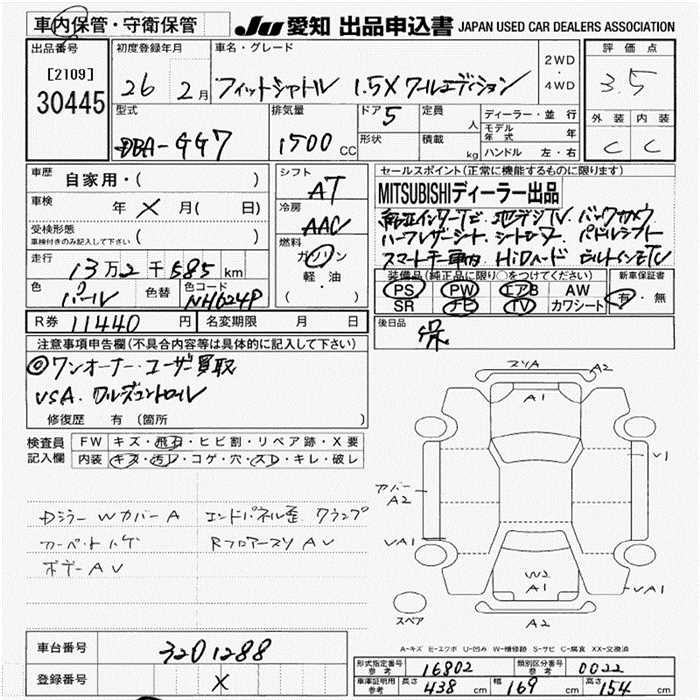 車内保管・守衛保管
JU 愛知 出品申込書 JAPAN USED CAR DEALERS ASSOCIATION
出品番号
[2109]
30445
初度登録年月
26 2月
車名・グレード
フィットシャトル 1.5X クールエディション
2WD
・
4WD
評価点
3.5
外装 内装
C C
型式
DBA-GG7
排気量
1500 CC
ドア 5
形状
定員 人
積載 kg
ディーラー・並行
モデル年式 年
ハンドル 左・右
車歴
自家用・( )
車検 年 X 月( 日)
受検形態
車検付きのみ記入して下さい ( )
走行
13万2千585 km
色 パール
色替
色コード NH624P
シフト
AT
冷房
AAC
燃料
ガソリン
軽・油
( )
R券 11440 円
名変期限 月 日
セールスポイント(正常に機能するものに限ります)
MITSUBISHIディーラー出品
純正インターナビ 地デジTV バックカメラ
ハーフレザーシート シートヒーター パドルシフト
スマートキー HiDヘッド ビルトインETC
装備品(純正品に限り○をつけてください)
PS PW エアB AW
SR ナビ TV カワシート
新車保証書
有・無
後日品
保
注意事項申告欄(不具合内容等は具体的に記入して下さい)
◎ワンオーナー・ユーザー買取
VSA.クルーズコントロール
修復歴 有 (箇所 )
検査員記入欄
FW キズ・飛石・ヒビ割・リペア跡・X要
内装 キズ・汚レ・コゲ・穴・スレ・キレ・破レ
Dミラー Wカバー A エンドパネル歪 クランプ
カーペットハゲ Rフロアースリ AV
ボデーAV
スリA A2
A1
V1
アバー
A2
VA1
W2
A1
VA1
A2
スペア
A-キズ E-エクボ U-凹み W-補修跡 S-サビ C-腐食 XX-交換済
車台番号 3201288
登録番号 X
形式指定番号 参考 16802
類別区分番号 参考 0022
車庫証明用 参考 長さ 438 cm 幅 169 cm 高さ 154 cm